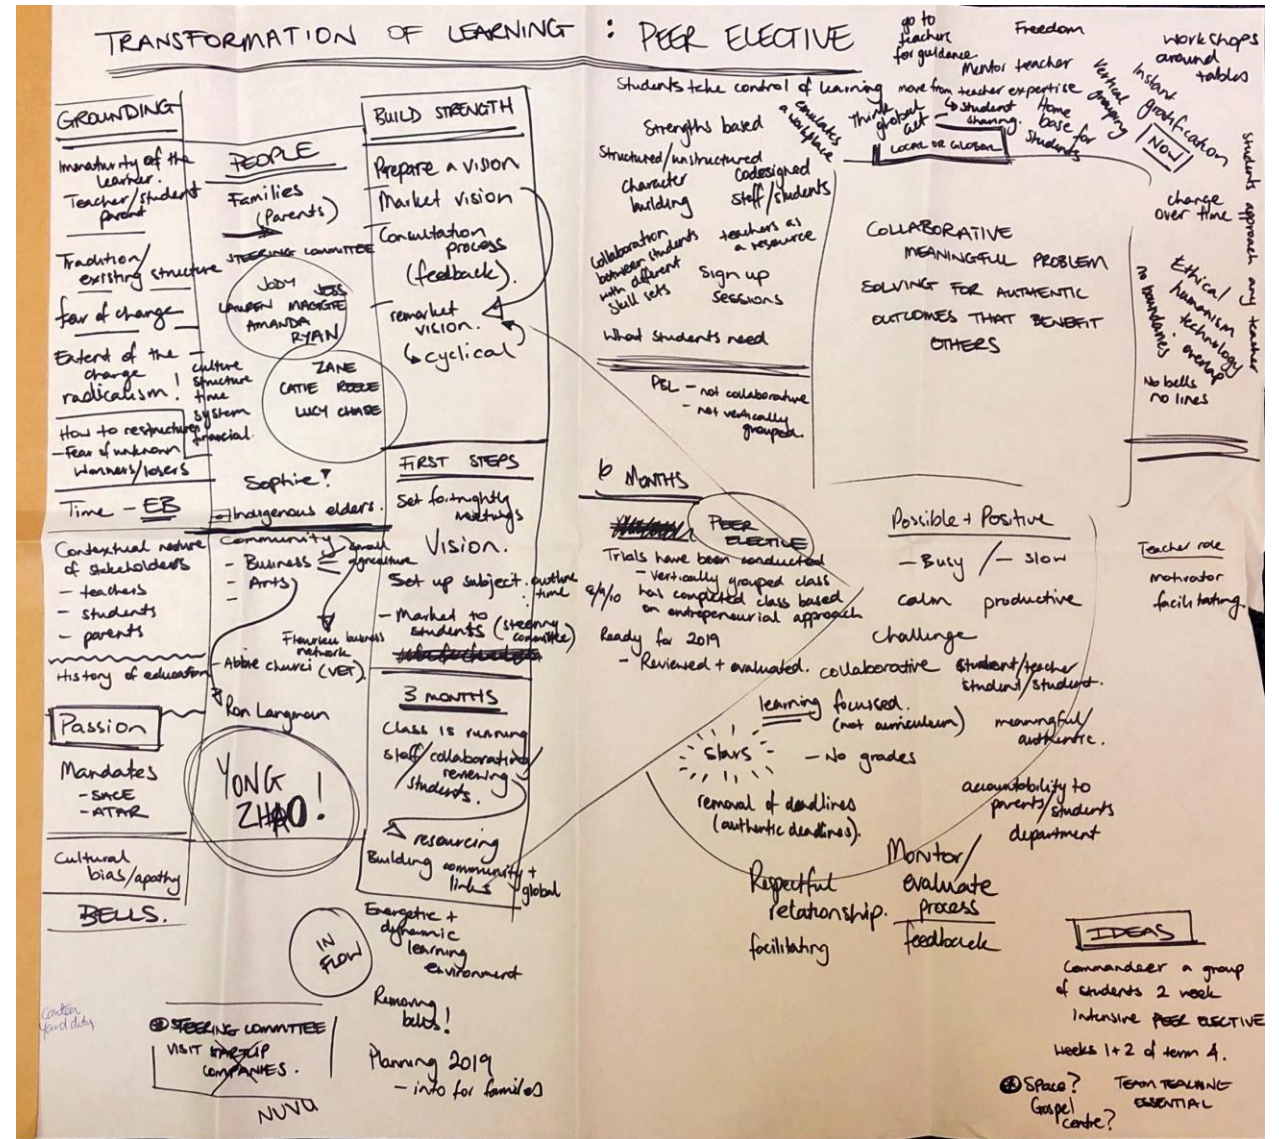 TRANSFORMATION OF LEARNING : PEER ELECTIVE
GROUNDING
Immaturity of the
learner.
Teacher/student
parent
Tradition/
existing structure
fear of change
Extent of the
change
radicalism!
- culture
structure
time
system
financial.
How to restructure
- Fear of unknown
Winners/losers
Time - EB
Contextual nature
of stakeholders
- teachers
- students
- parents
History of education
Passion
Mandates
- SACE
- ATAR
Cultural
bias/apathy
BELLS.
PEOPLE
Families
(Parents)
STEERING COMMITTEE
JODY JOSS
LAUREN MAGGIE
AMANDA
RYAN
ZANE
CATIE
LUCY CHASE
Sophie?
Indigenous elders.
Community
- Business
small
agriculture
- Arts
-
Fleurieu business
network
- Abbie (VET)
Ron Langman
YONG
ZHAO!
BUILD STRENGTH
Prepare a vision
Market vision
Consultation
process
(feedback).
remarket
vision.
cyclical
FIRST STEPS
Set fortnightly
meetings
Vision.
Set up subject: outline
: time
- Market to
students (steering
committee)
3 MONTHS
Class is running
staff/collaboration/
reviewing
/students.
resourcing
Building community +
links global
Energetic +
dynamic
learning
environment
IN
FLOW
Removing
bells!
Planning 2019
- info for families
Canteen
yard duty
STEERING COMMITTEE
VISIT STARTUP
COMPANIES.
NUVU
Students take control of learning
Strengths based
emulates
a workplace
Structured/unstructured
Character
building
Codesigned
staff/students
collaboration
between students
with different
skill sets
teachers as
a resource
Sign up
sessions
What students need
PBL - not collaborative
- not vertically
grouped.
go to
teachers
for guidance.
Freedom
Mentor teacher
move from teacher expertise
student
sharing.
Think
global
act
LOCAL OR GLOBAL
Home
base for
students
Vertical
grouping
Instant
gratification
NOW
workshops
around
tables
students approach any teacher
change
over time
COLLABORATIVE
MEANINGFUL PROBLEM
SOLVING FOR AUTHENTIC
OUTCOMES THAT BENEFIT
OTHERS
Ethical
humanism
technology
overlap
no boundaries
No bells
no lines
6 MONTHS
PEER
ELECTIVE
Trials have been conducted
- vertically grouped class
8/9/10 has completed class based
on entrepeneurial approach
Ready for 2019
- Reviewed + evaluated.
Possible + Positive
- Busy / - slow
calm productive
Challenge
collaborative
student/teacher
student/student.
learning focused.
(not curriculum)
meaningful/
authentic.
stars
- No grades
removal of deadlines
(authentic deadlines).
accountability to
parents/students
department
Respectful
relationship.
facilitating
Monitor/
evaluate
process
feedback
Teacher role
motivator
facilitating.
IDEAS
Commandeer a group
of students 2 week
intensive PEER ELECTIVE
weeks 1+2 of term 4.
Space?
Gospel
centre?
TEAM TEACHING
ESSENTIAL